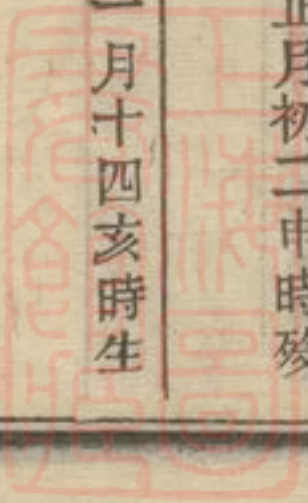 正月初二申時殁
月十四亥時生